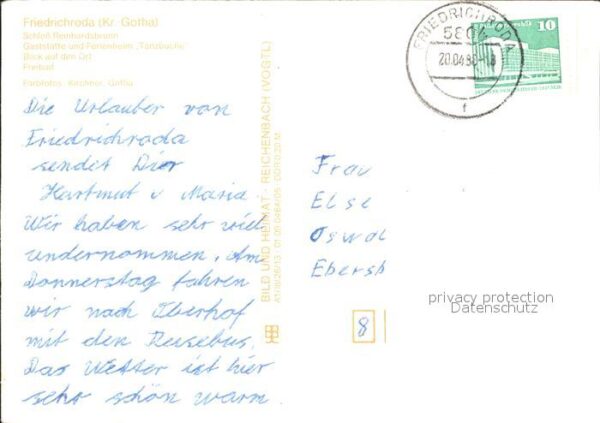 Friedrichroda (Kr. Gotha)
Schloß Reinhardsbrunn
Gaststätte und Ferienheim „Tanzbuche"
Blick auf den Ort
Freibad
Farbfotos: Kirchner, Gotha
Die Urlauber von
Friedrichroda
sendet Dir
Hartmut u Maria
Wir haben sehr viel
undernommen. Am
Donnerstag fahren
wir nach Oberhof
mit den Reisebus.
Das Wetter ist hier
sehr schön warm
BILD UND HEIMAT · REICHENBACH (VOGTL)
FRIEDRICHRODA
5804
20.04.
f
10
Frau
Else
Oswal
Ebersb
8
privacy protection
Datenschutz